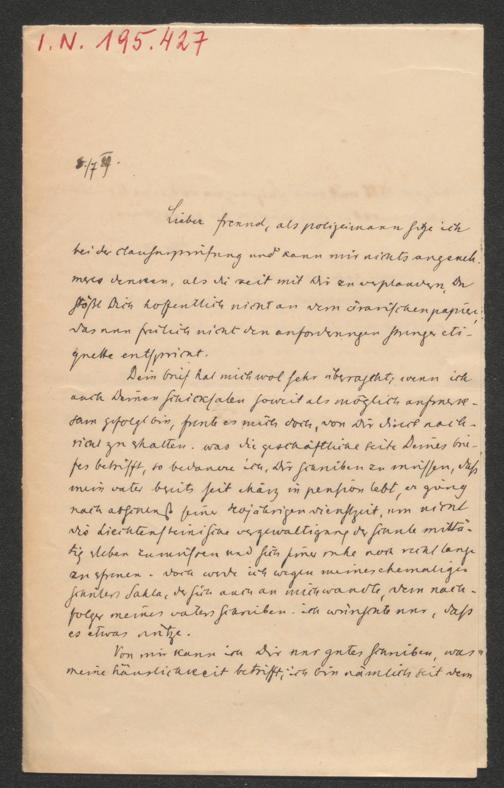 I.N. 195.427
8/7 89.
Lieber freund, als polizeimann sitze ich
bei der clausurprüfung und kann mir nichts angeneh-
meres denken, als die zeit mit Dir zu verplaudern. Du
stößt Dich hoffentlich nicht an dem ärarischen papier,
das nun freilich nicht den anforderungen strenger eti-
quette entspricht.
Dein brief hat mich wol sehr überrascht; wenn ich
auch Deinen schicksalen soweit als möglich aufmerk-
sam gefolgt bin, freute es mich doch, von Dir direct nach-
richt zu erhalten. was die geschäftliche seite Deines brie-
fes betrifft, so bedauere ich, Dir schreiben zu müssen, daß
mein vater bereits seit märz in pension lebt, er gieng
nach seiner 40jährigen dienstzeit, um nicht
die Liechtensteinische vergewaltigung der schule mittä-
tig erleben zu müssen und sich seiner ruhe noch recht lange
zu erfreuen. doch werde ich wegen meines ehemaligen
schülers der sich auch an mich wandte, dem nach-
folger meines vaters schreiben. ich wünschte nur, daß
es etwas nütze.
Von mir kann ich Dir nur gutes schreiben, was
meine häuslichkeit betrifft; ich bin nämlich seit dem